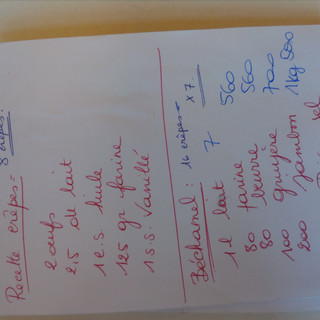 8 crêpes.
Recette crêpes =
2 œufs
2,5 de lait
1 c.s. huile
125 gr farine
1 s.s. Vanillé
Béchamel : 16 crêpes = x 7
1 l lait 7
80 farine 560
80 beurre 560
100 gruyère 700
200 jambon 1kg 500